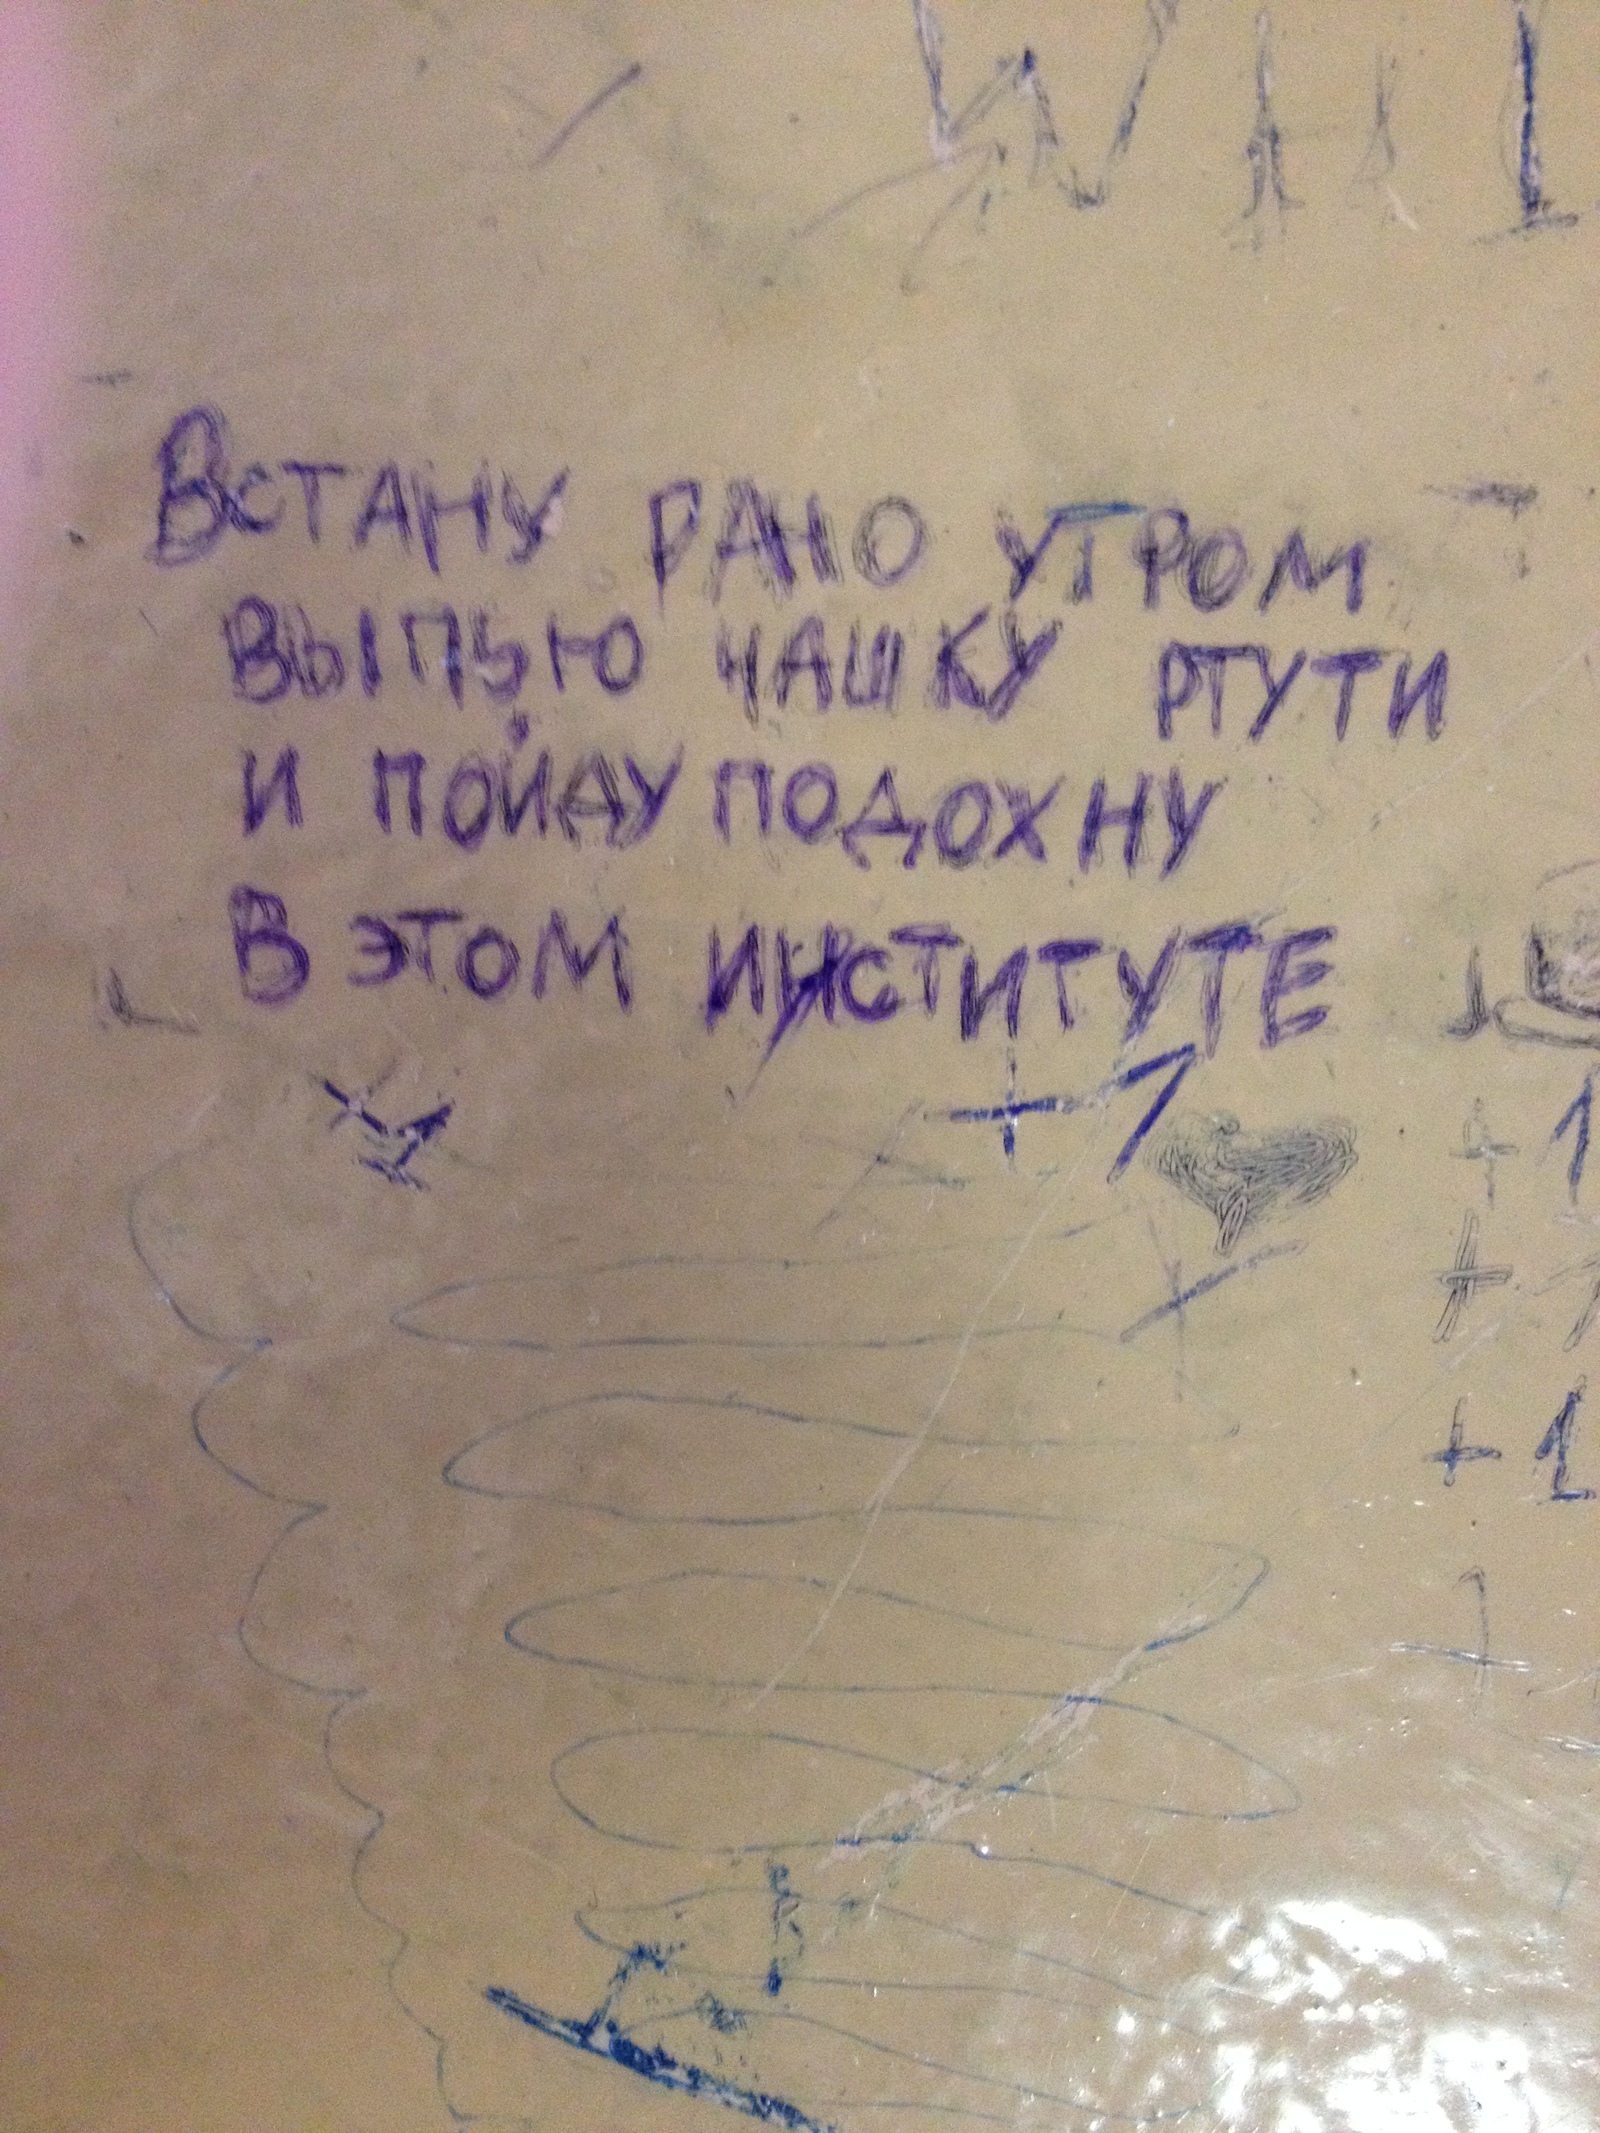 Встану рано утром
выпью чашку ртути
и пойду подохну
в этом институте
+1
+1
+1
+1